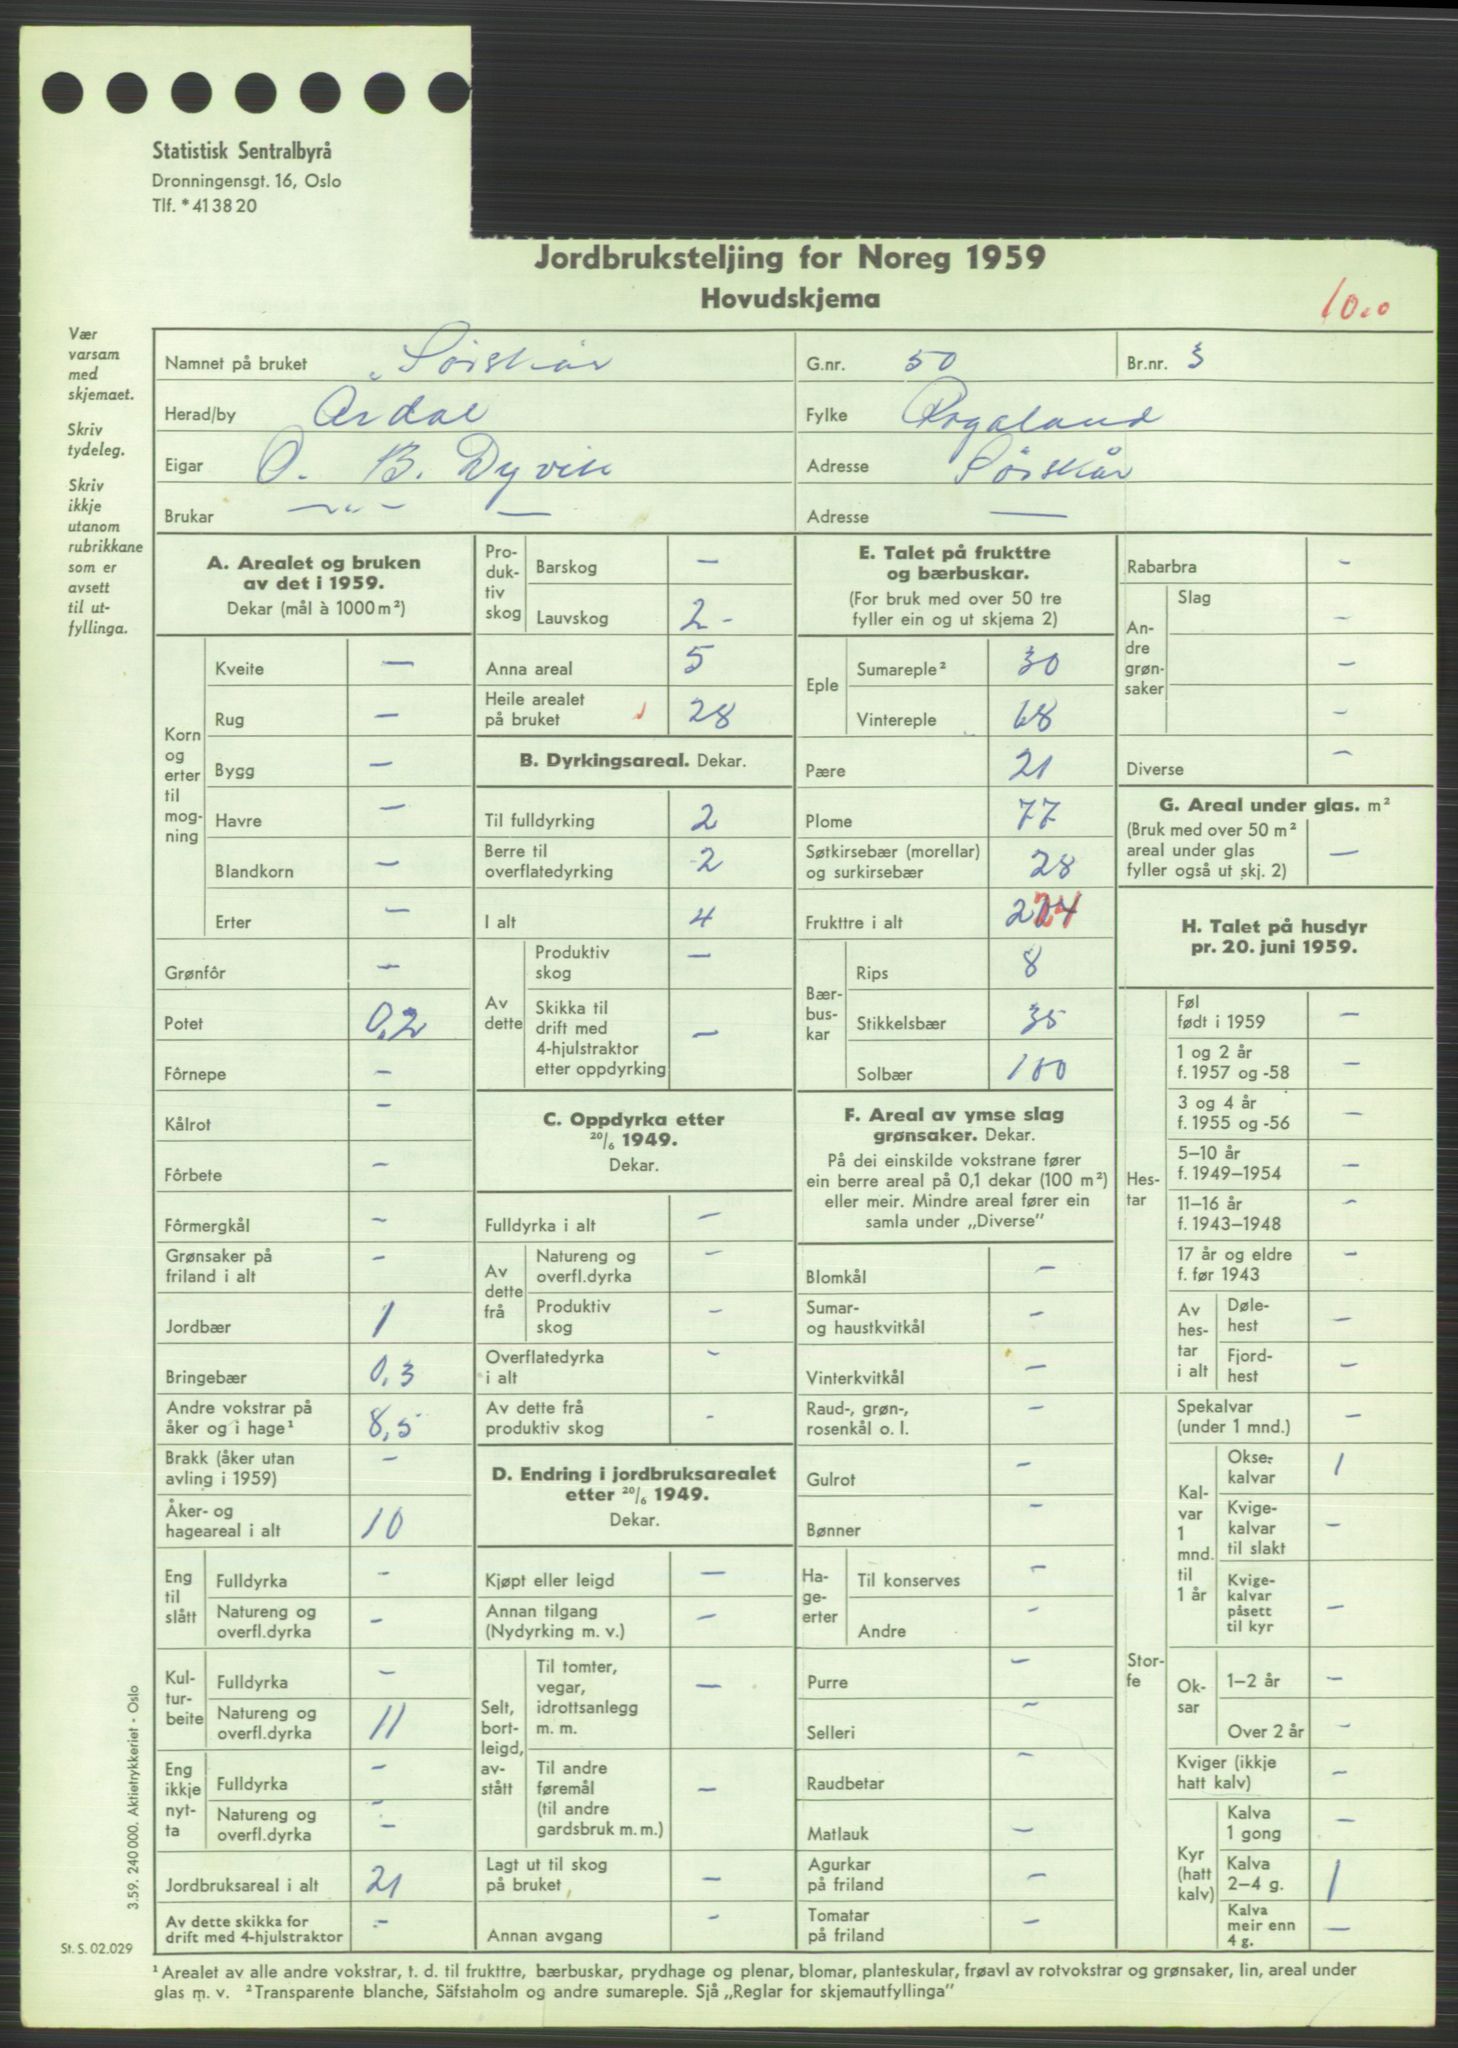 Statistisk Sentralbyrå
Dronningensgt. 16, Oslo
Tlf. * 41 38 20
Jordbruksteljing for Noreg 1959
Hovudskjema
10.0
Vær
varsam
med
skjemaet.
Skriv
tydeleg.
Skriv
ikkje
utanom
rubrikkane
som er
avsett
til ut-
fyllinga.
Namnet på bruket Sørskår G.nr. 50 Br.nr. 3
Herad/by Årdal Fylke Rogaland
Eigar O. B. Dyvik Adresse Sørskår
Brukar —„— — Adresse —
A. Arealet og bruken
av det i 1959.
Dekar (mål à 1000 m²)
Korn
og
erter
til
mog-
ning
Kveite —
Rug —
Bygg —
Havre —
Blandkorn —
Erter —
Grønfôr —
Potet 0,2
Fôrnepe —
Kålrot —
Fôrbete —
Fôrmergkål —
Grønsaker på
friland i alt —
Jordbær 1
Bringebær 0,3
Andre vokstrar på
åker og i hage¹ 8,5
Brakk (åker utan
avling i 1959) —
Åker- og
hageareal i alt 10
Eng
til
slått
Fulldyrka —
Natureng og
overfl.dyrka —
Kul-
tur-
beite
Fulldyrka —
Natureng og
overfl.dyrka 11
Eng
ikkje
nyt-
ta
Fulldyrka —
Natureng og
overfl.dyrka —
Jordbruksareal i alt 21
Av dette skikka for
drift med 4-hjulstraktor —
Pro-
duk-
tiv
skog
Barskog —
Lauvskog 2 -
Anna areal 5
Heile arealet
på bruket 28
B. Dyrkingsareal. Dekar.
Til fulldyrking 2
Berre til
overflatedyrking 2
I alt 4
Av
dette
Produktiv
skog —
Skikka til
drift med
4-hjulstraktor
etter oppdyrking —
C. Oppdyrka etter
20/6 1949.
Dekar.
Fulldyrka i alt —
Av
dette
frå
Natureng og
overfl.dyrka —
Produktiv
skog —
Overflatedyrka
i alt —
Av dette frå
produktiv skog -
D. Endring i jordbruksarealet
etter 20/6 1949.
Dekar.
Kjøpt eller leigd —
Annan tilgang
(Nydyrking m. v.) —
Selt,
bort-
leigd,
av-
stått
Til tomter,
vegar,
idrottsanlegg
m. m. —
Til andre
føremål
(til andre
gardsbruk m. m.) —
Lagt ut til skog
på bruket —
Annan avgang —
E. Talet på frukttre
og bærbuskar.
(For bruk med over 50 tre
fyller ein og ut skjema 2)
Eple
Sumareple² 30
Vintereple 68
Pære 21
Plome 77
Søtkirsebær (morellar)
og surkirsebær 28
Frukttre i alt 224
Bær-
bus-
kar
Rips 8
Stikkelsbær 35
Solbær 100
F. Areal av ymse slag
grønsaker. Dekar.
På dei einskilde vokstrane fører
ein berre areal på 0,1 dekar (100 m²)
eller meir. Mindre areal fører ein
samla under „Diverse”
Blomkål —
Sumar-
og haustkvitkål —
Vinterkvitkål —
Raud-, grøn-,
rosenkål o. l. —
Gulrot —
Bønner —
Ha-
ge-
erter
Til konserves —
Andre —
Purre —
Selleri —
Raudbetar —
Matlauk —
Agurkar
på friland —
Tomatar
på friland —
Rabarbra —
An-
dre
grøn-
saker
Slag
—
—
—
Diverse —
G. Areal under glas. m²
(Bruk med over 50 m²
areal under glas
fyller også ut skj. 2) —
H. Talet på husdyr
pr. 20. juni 1959.
Hes-
tar
Føl
født i 1959 —
1 og 2 år
f. 1957 og -58 —
3 og 4 år
f. 1955 og -56 —
5–10 år
f. 1949–1954 —
11–16 år
f. 1943–1948 —
17 år og eldre
f. før 1943 —
Av
hes-
tar
i alt
Døle-
hest —
Fjord-
hest —
Stor-
fe
Spekalvar
(under 1 mnd.) —
Kal-
var
1
mnd.
til
1 år
Okse-
kalvar 1
Kvige-
kalvar
til slakt —
Kvige-
kalvar
påsett
til kyr —
Ok-
sar
1–2 år —
Over 2 år —
Kviger (ikkje
hatt kalv) —
Kyr
(hatt
kalv)
Kalva
1 gong —
Kalva
2–4 g. 1
Kalva
meir enn
4 g. —
3.59. 240 000. Aktietrykkeriet - Oslo
St. S. 02.029
¹ Arealet av alle andre vokstrar, t. d. til frukttre, bærbuskar, prydhage og plenar, blomar, planteskular, frøavl av rotvokstrar og grønsaker, lin, areal under
glas m. v. ² Transparente blanche, Säfstaholm og andre sumareple. Sjå „Reglar for skjemautfyllinga”